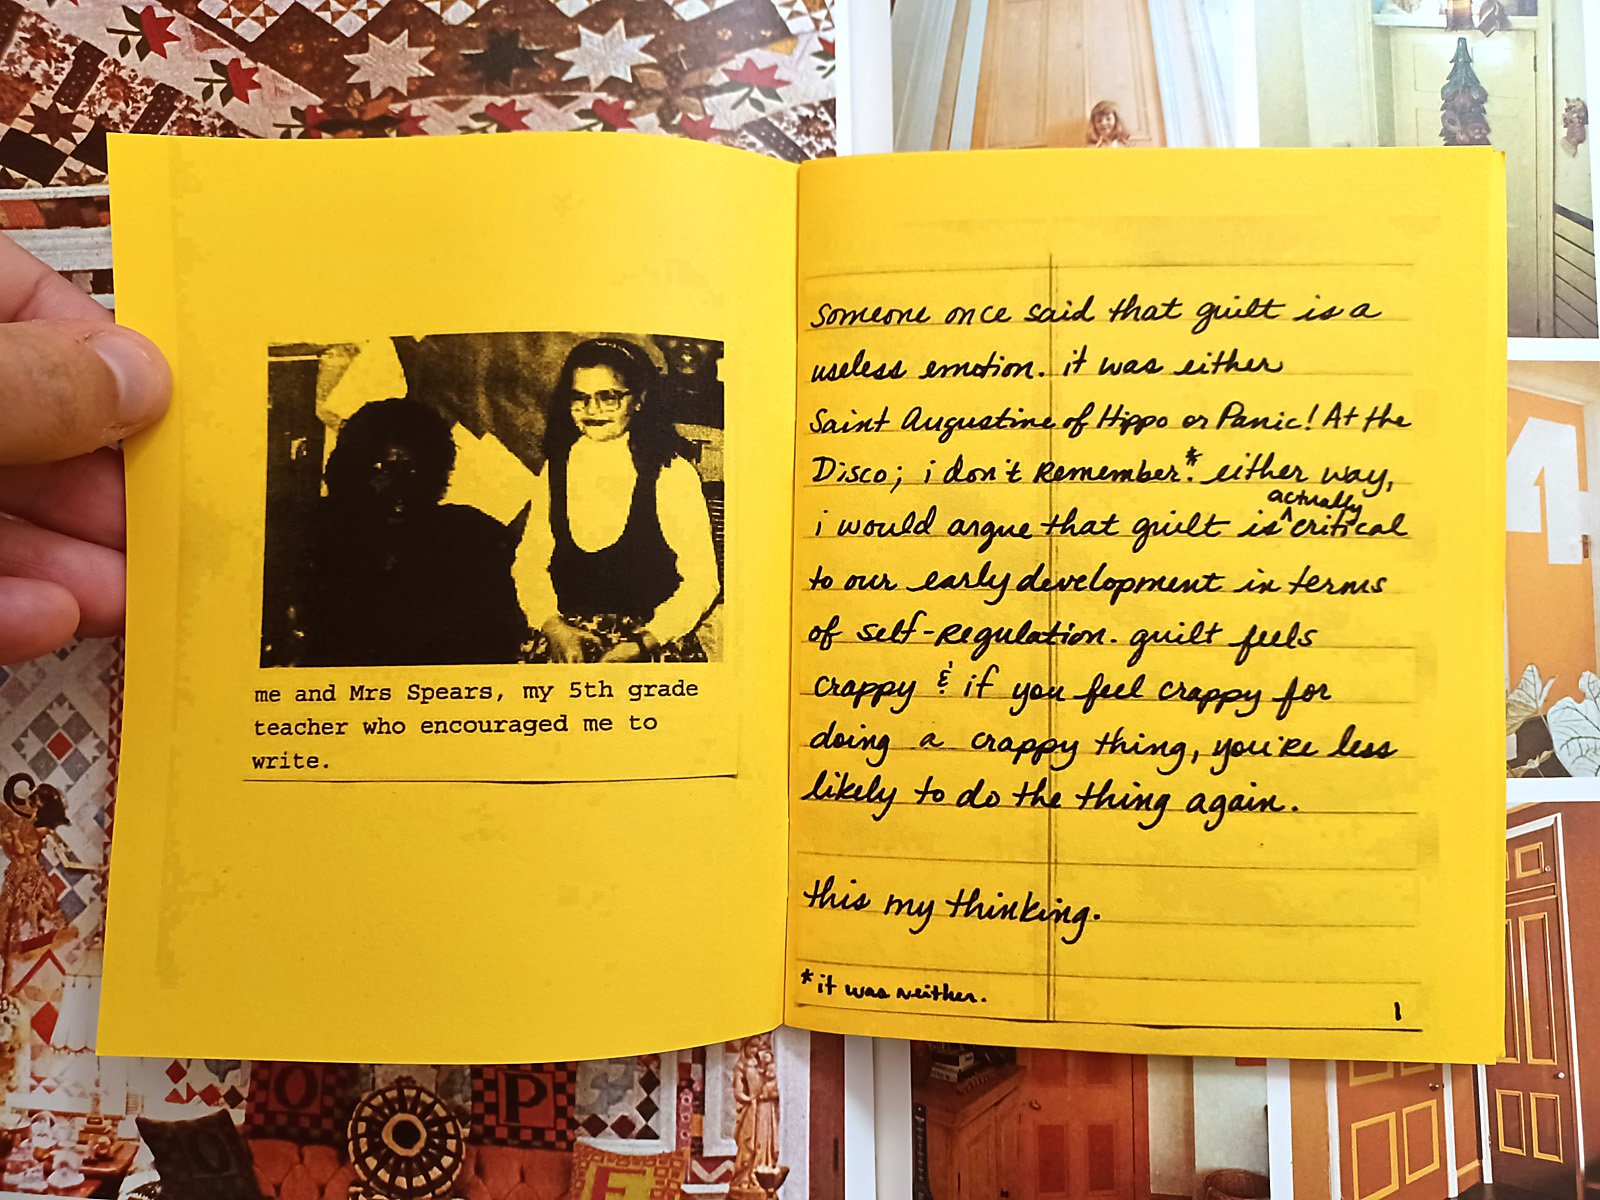 me and Mrs Spears, my 5th grade
teacher who encouraged me to
write.
Someone once said that guilt is a
useless emotion. it was either
Saint Augustine of Hippo or Panic! At the
Disco; i don't remember.* either way,
i would argue that guilt is ^actually critical
to our early development in terms
of self-regulation. guilt feels
crappy & if you feel crappy for
doing a crappy thing, you're less
likely to do the thing again.
this my thinking.
* it was neither.
1
O
P
E